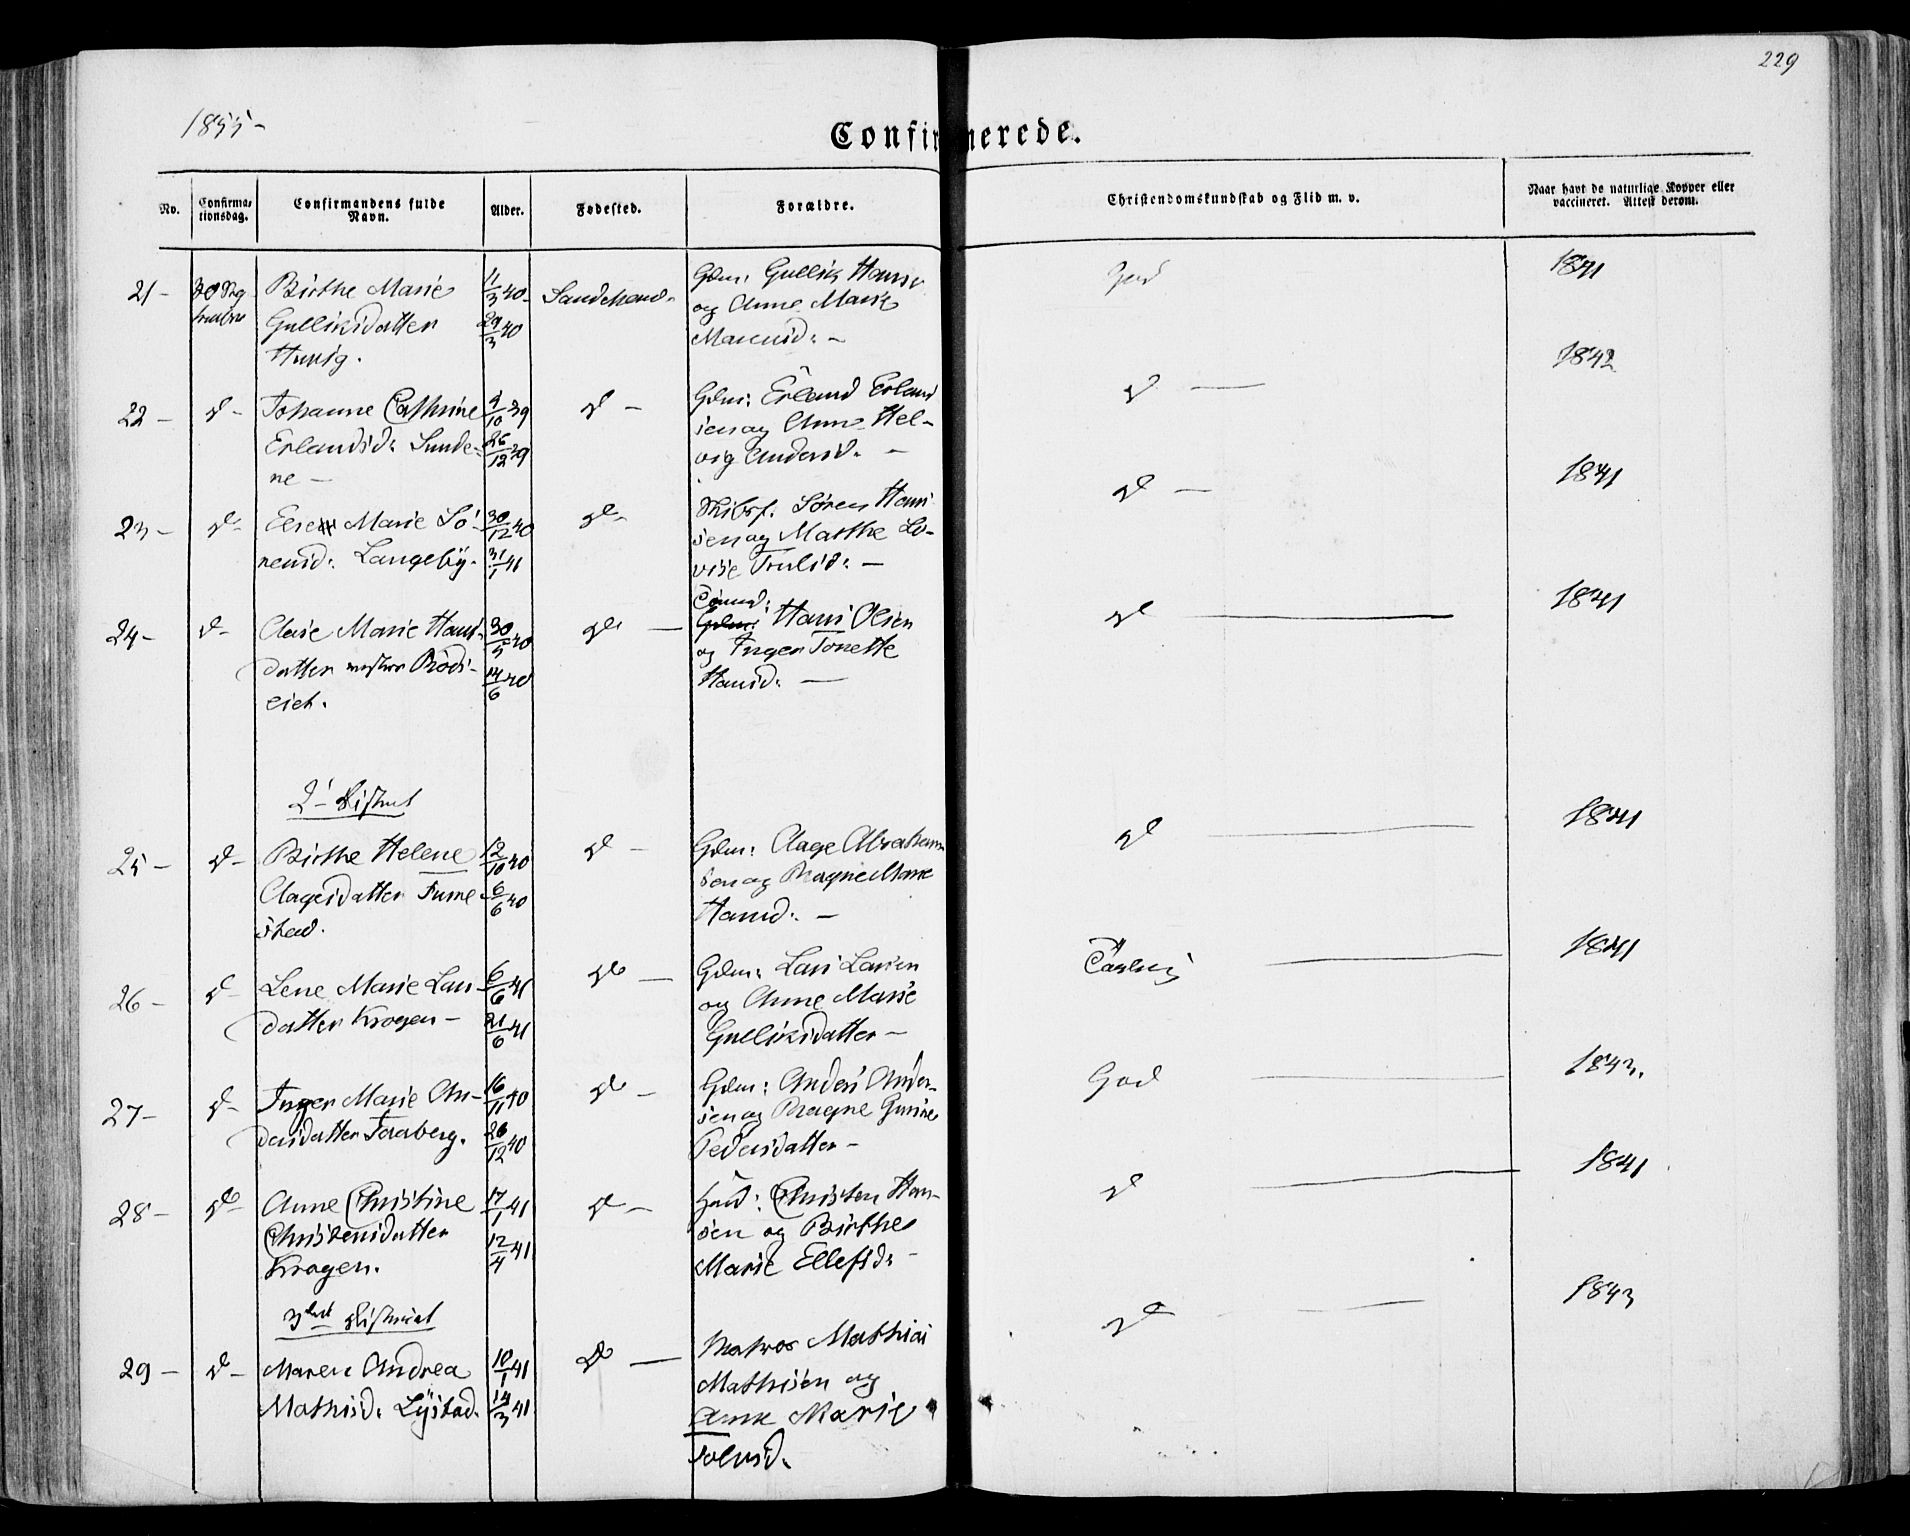 229
1855-
Confirmerede.
No.
Confirma-
tionsdag.
Confirmandens fulde
Navn.
Alder.
Fødested.
Forældre.
Christendomskundskab og Flid m. v.
Naar havt de naturlige Kopper eller
vaccineret. Attest derom.
21-
Birthe Marie
Gulliksdatter
11/3 40-
29/3 40
Sandeherred.
Gdm: Gullik Hansen
og Anne Marie
God
1841
22- d-
Johanne Cathrine
Erlandsd: Sunde-
ne -
4/10 39
26/12 39
d -
Gdm: Erland Erland
sen og Anne Hel-
vig Andersd. -
d -
1842
23- d-
Else Marie Sö-
rensd: Langeby.
30/12 40
31/1 41
d-
Skibsf. Sören Hans
sen og Marthe Lo-
vise Trulsd: -
d -
1841
24- d-
Marie Hans-
datter Röds-
eich.
30/5 40
14/6 40
d -
Gdm: Hans Olsen
og Inger Tonette
Hansd: -
d -
1841
2- District
25- d-
Birthe Helene
Aagesdatter Furue
stad.
12/10 40
6/6 40
d -
Gdm: Aage Abrahams
sen og Ragne Marie
Hansd: -
d -
1841
26- d-
Lene Marie Lars
datter Krogen -
6/6 41
21/6 41
d -
Gdm: Lars Larsen
og Anne Marie
Gulliksdatter -
1841
27- d-
Inger Marie An-
dersdatter Foraberg.
16/11 40
26/12 40
d -
Gdm: Anders Ander-
sen og Ragne Gurine
Pedersdatter -
God -
1843.
28- d-
Anne Christine
Christensdatter
Krogen.
17/1 41
12/4 41
d -
Christen Han-
sen og Birthe
Marie Ellefsd: -
d -
1841
3die District
29- d-
Maren Andrea
Mathisd: Lÿstad.
10/1 41
14/3 41
d -
Matros Mathias
Mathisen og
Anne Marie
d -
1843